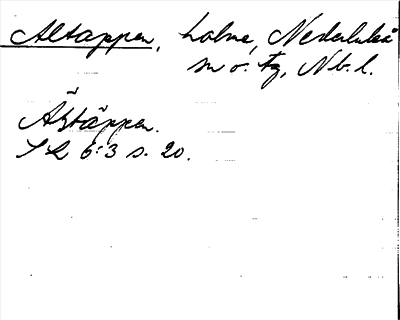 Altappen, holme, Nederluleå
sn o. tg, Nb. l.
Ålstäppen.
SL 6:3 s. 20.